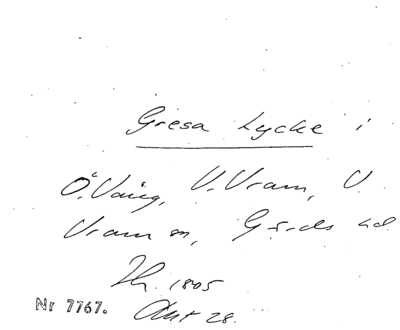 Gresa Lycke i
Ö. Vång, V. Vram, V.
Vram sn, Gärds hd.
Th. 1805
Nr 7767. Akt 28.